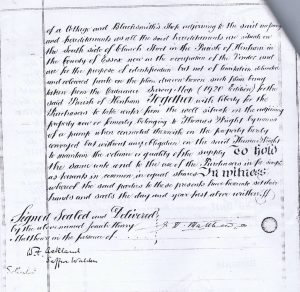 of a Cottage and Blacksmith's Shop adjoining to the said
and hereditaments all the said hereditaments are situate on
the South side of Church Street in the Parish of Henham in
the County of Essex now in the occupation of the Vendor and
are for the purpose of identification but not of limitation delineated
and coloured pink on the plan drawn hereon such plan being
taken from the Ordnance Survey Map (1920 Edition) for the
said Parish of Henham Together with liberty for the
Purchasers to take water from the well situate in the adjoining
property now or formerly belonging to Thomas Wright by means
of a pump when connected therewith on the property hereby
conveyed but without any obligation on the said Thomas Wright
to maintain the volume or quality of the supply To hold
the same unto and to the use of the Purchasers in fee simple
as tenants in common in equal shares In witness
whereof the said parties to these presents have hereunto set their
hands and seals the day and year first above written
Signed Sealed and Delivered
by the abovenamed Henry
Matthews in the presence of
Saffron Walden